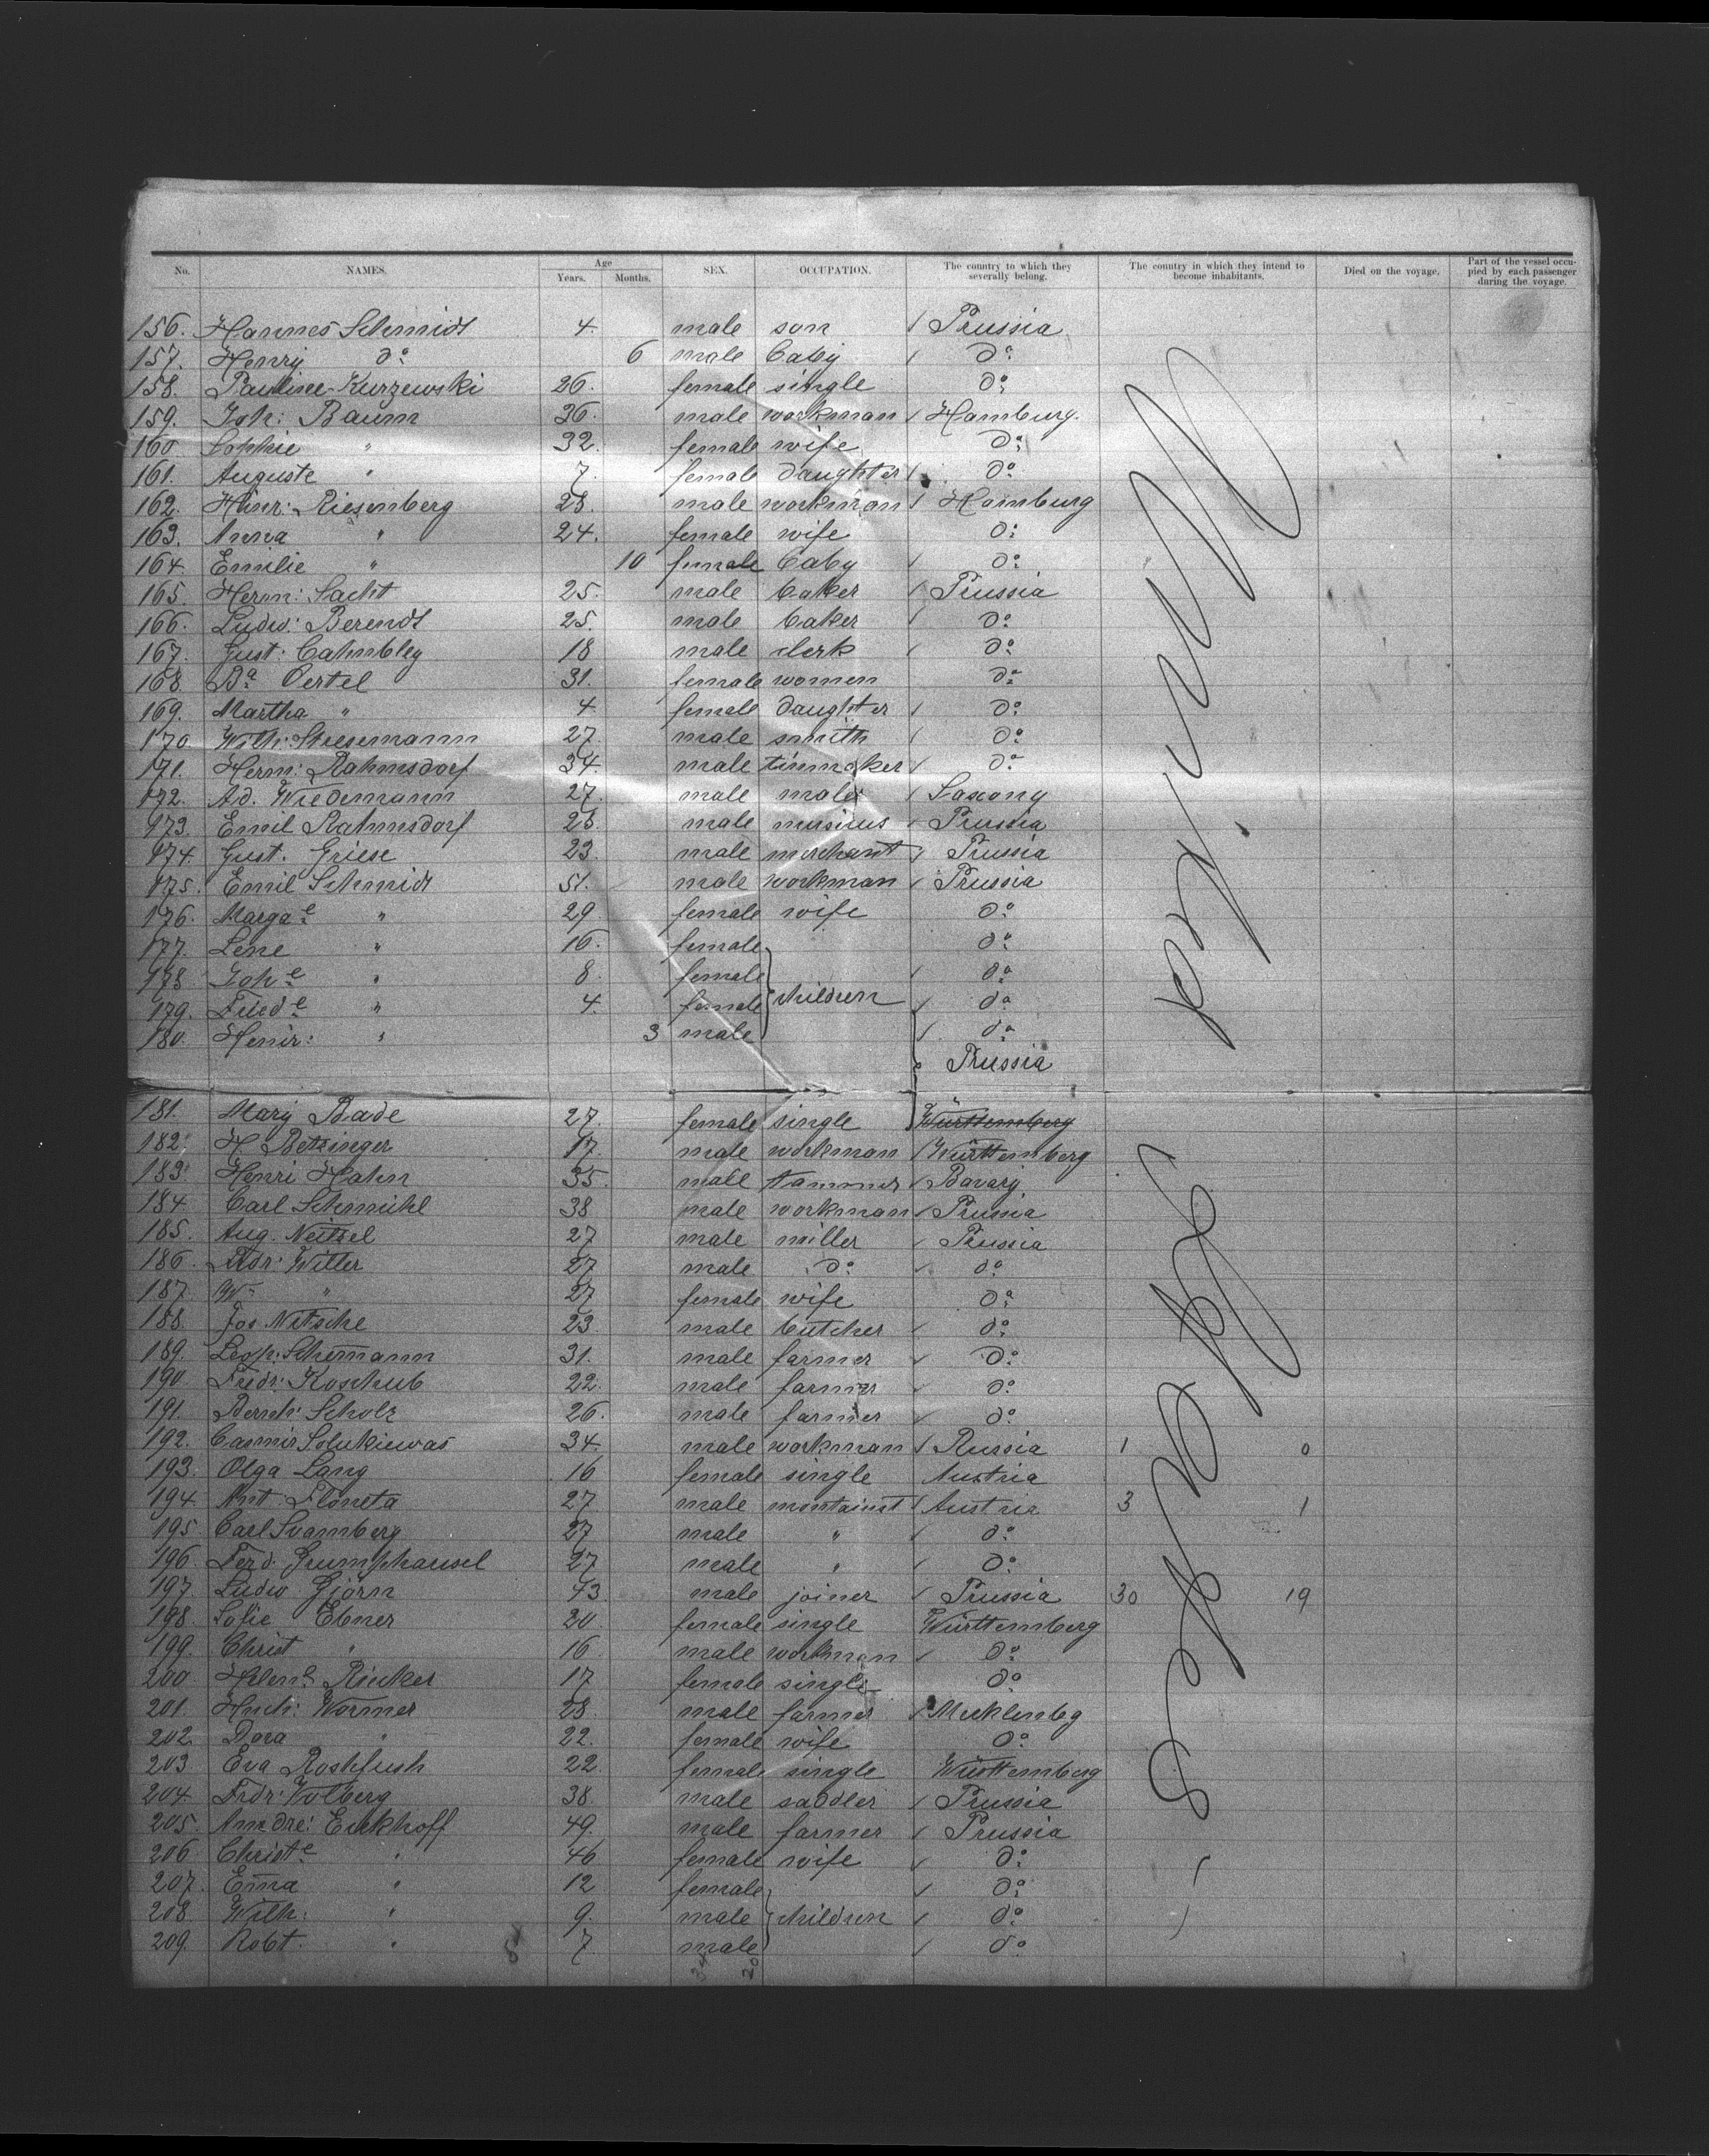 No. NAMES. Age Years. Months. SEX. OCCUPATION. The country to which they severally belong. The country in which they intend to become inhabitants. Died on the voyage. Part of the vessel occupied by each passenger during the voyage.
156. Hannes Schmidt 4. male son / Prussia
157. Henry do 6 male baby / do
158. Pauline Kurzewski 26. female single do
159. Joh: Baum 36. male workman / Hamburg.
160 Sophie " 32. female wife do
161. Auguste " 7. female daughter / do
162. Hinr: Riesenberg 28. male workman / Hamburg
163. Anna " 24. female wife do
164. Emilie " 10 female baby / do
165. Herm: Sacht 25. male baker / Prussia
166. Ludw: Berendt 25. male baker / do
167. Gust: Cahnbley 18 male clerk / do
168. Ba Oertel 31. female women do
169. Martha " 4. female daughter / do
170. Wilh: Stresemann 27. male smith / do
171. Herm: Rahmsdorf 34. male tinmaker / do
172. Ad. Wiedemann 27. male / Saxony
173. Emil Rahmsdorf 26. male musicus / Prussia
174. Gust. Griese 23. male merchant / Prussia
175. Emil Schmidt 51. male workman / Prussia
176. Margae " 29 female wife do
177. Lene " 16. female do
178 Johe " 8. female / do
179. Friede " 4. female children / do
180. Heinr: " 3 male / do
Prussia
181. Mary Bade 27. female single Württemberg
182. H. Betzinger 17. male workman / Württemberg
183. Henri Hahn 35. male / Bavary
184. Carl Schmühl 38 male workman / Prussia
185. Aug. Neitzel 27 male miller / Prussia
186. Witter 27 male do / do
187. " 27 female wife do
188. Jos Nitsche 23 male butcher / do
189. Leop: Schemann 31. male farmer / do
190. Fredr: Koschub 22. male farmer / do
191. Scholz 26. male farmer / do
192. Casmir 34. male workman / Russia 1 0
193. Olga Lang 16 female single Austria
194. Ant. Floneta 27 male / Austria 3 1
195 Carl Svamberg 27 male " / do
196. Ferd. 27 male " / do
197. Ludw 43 male joiner / Prussia 30 19
198. Sofie Ebner 20 female single Württemberg
199. Christ " 16 male workman / do
200 Rieker 17 female single do
201. Wormer 28. male farmer / Mecklenbg
202. Dora " 22. female wife do
203 Eva 22. female single Württemberg
204. Frdr: Volberg 38. male saddler / Prussia
205. Eickhoff 49. male farmer / Prussia
206 Christe " 46 female wife / do
207. Em̄a " 12 female / do
208 Wilh: " 9. male children / do
209. Robt. " 7 male / do
34 20